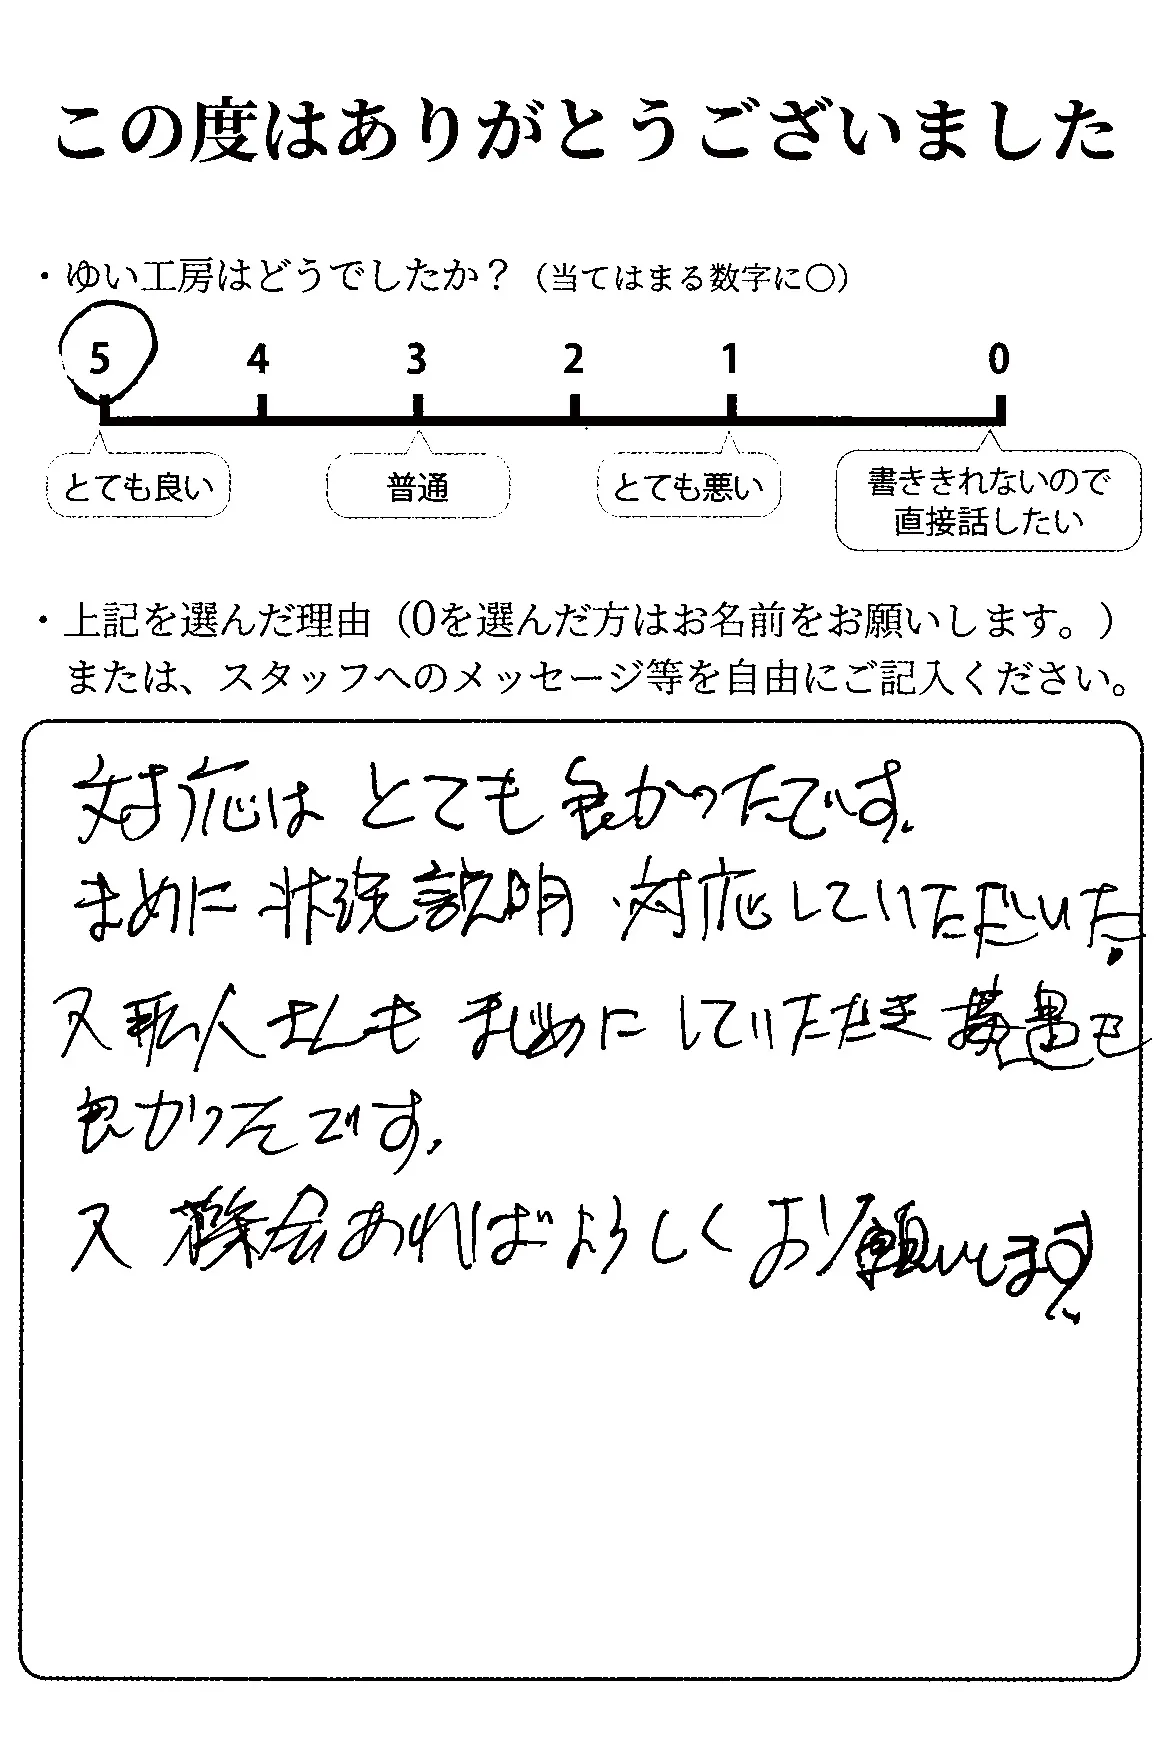 この度はありがとうございました
・ゆい工房はどうでしたか？（当てはまる数字に〇）
5 4 3 2 1 0
とても良い 普通 とても悪い 書ききれないので
直接話したい
・上記を選んだ理由（0を選んだ方はお名前をお願いします。）
または、スタッフへのメッセージ等を自由にご記入ください。
対応はとても良かったです。
まめに状況説明・対応していただいた。
又職人さんもまじめにしていただき
良かったです。
又機会あればよろしくお願いします